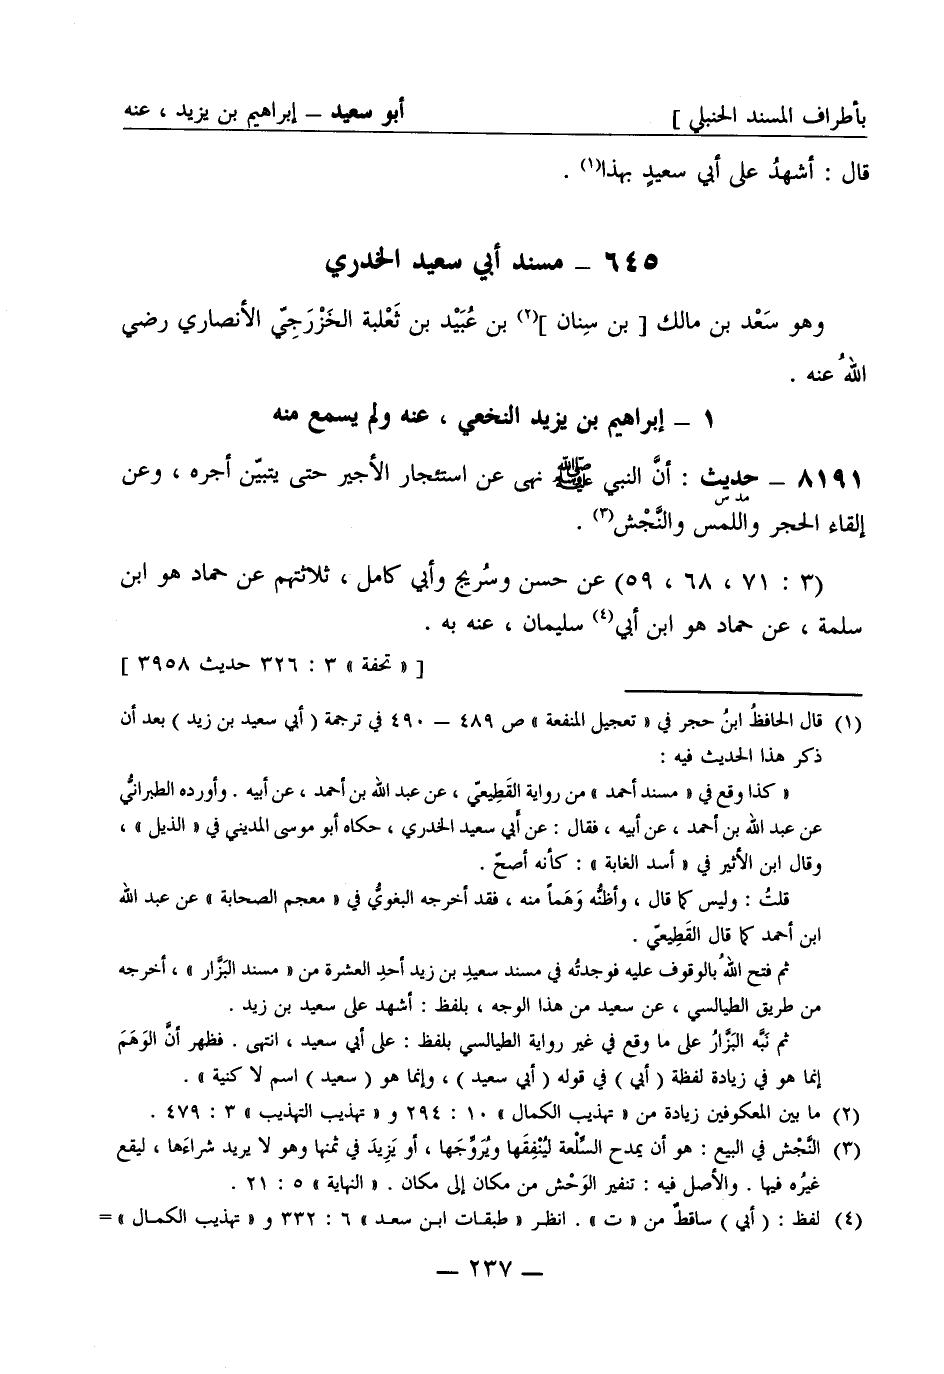 بأطراف المسند الحنبلي ] أبو سعيد – إبراهيم بن يزيد ، عنه
قال : أشهدُ على أبي سعيدٍ بهذا(١) .
٦٤٥ – مسند أبي سعيد الخدري
وهو سَعْد بن مالك [ بن سِنان ](٢) بن عُبَيْد بن ثَعْلبة الخَزْرَجِيّ الأنصاري رضي
اللهُ عنه .
١ – إبراهيم بن يزيد النخعي ، عنه ولم يسمع منه
٨١٩١ – حديث : أنَّ النبي ﷺ نهى عن استئجار الأجير حتى يتبيّن أجره ، وعن
مد س
إلقاء الحجر واللمس والنَّجْش(٣) .
(٣ : ٧١ ، ٦٨ ، ٥٩) عن حسن وسُريج وأبي كامل ، ثلاثتهم عن حماد هو ابن
سلمة ، عن حماد هو ابن أبي(٤) سليمان ، عنه به .
[ « تحفة » ٣ : ٣٢٦ حديث ٣٩٥٨ ]
(١) قال الحافظُ ابنُ حجر في « تعجيل المنفعة » ص ٤٨٩ – ٤٩٠ في ترجمة ( أبي سعيد بن زيد ) بعد أن
ذكر هذا الحديث فيه :
« كذا وقع في « مسند أحمد » من رواية القَطِيعيّ ، عن عبد الله بن أحمد ، عن أبيه . وأورده الطبرانيُّ
عن عبد الله بن أحمد ، عن أبيه ، فقال : عن أبي سعيد الخدري ، حكاه أبو موسى المديني في « الذيل » ،
وقال ابن الأثير في « أسد الغابة » : كأنه أصحّ .
قلتُ : وليس كما قال ، وأظنُّه وَهَماً منه ، فقد أخرجه البغويُّ في « معجم الصحابة » عن عبد الله
ابن أحمد كما قال القَطِيعيّ .
ثم فتح اللهُ بالوقوف عليه فوجدتُه في مسند سعيدِ بن زيد أحدِ العشرة من « مسند البَزَّار » ، أخرجه
من طريق الطيالسي ، عن سعيد من هذا الوجه ، بلفظ : أشهد على سعيد بن زيد .
ثم نَبَّه البَزَّارُ على ما وقع في غير رواية الطيالسي بلفظ : على أبي سعيد ، انتهى . فظهر أنَّ الوَهَمَ
إنما هو في زيادة لفظة ( أبي ) في قوله ( أبي سعيد ) ، وإنما هو ( سعيد ) اسم لا كنية » .
(٢) ما بين المعكوفين زيادة من « تهذيب الكمال » ١٠ : ٢٩٤ و « تهذيب التهذيب » ٣ : ٤٧٩ .
(٣) النَّجْش في البيع : هو أن يمدح السِّلْعة ليُنْفِقَها ويُرَوِّجَها ، أو يَزِيدَ في ثمنها وهو لا يريد شراءَها ، ليقع
غيرُه فيها . والأصل فيه : تنفير الوَحْش من مكان إلى مكان . « النهاية » ٥ : ٢١ .
(٤) لفظ : ( أبي ) ساقطٌ من « ت » . انظر « طبقات ابن سعد » ٦ : ٣٣٢ و « تهذيب الكمال » =
– ٢٣٧ –